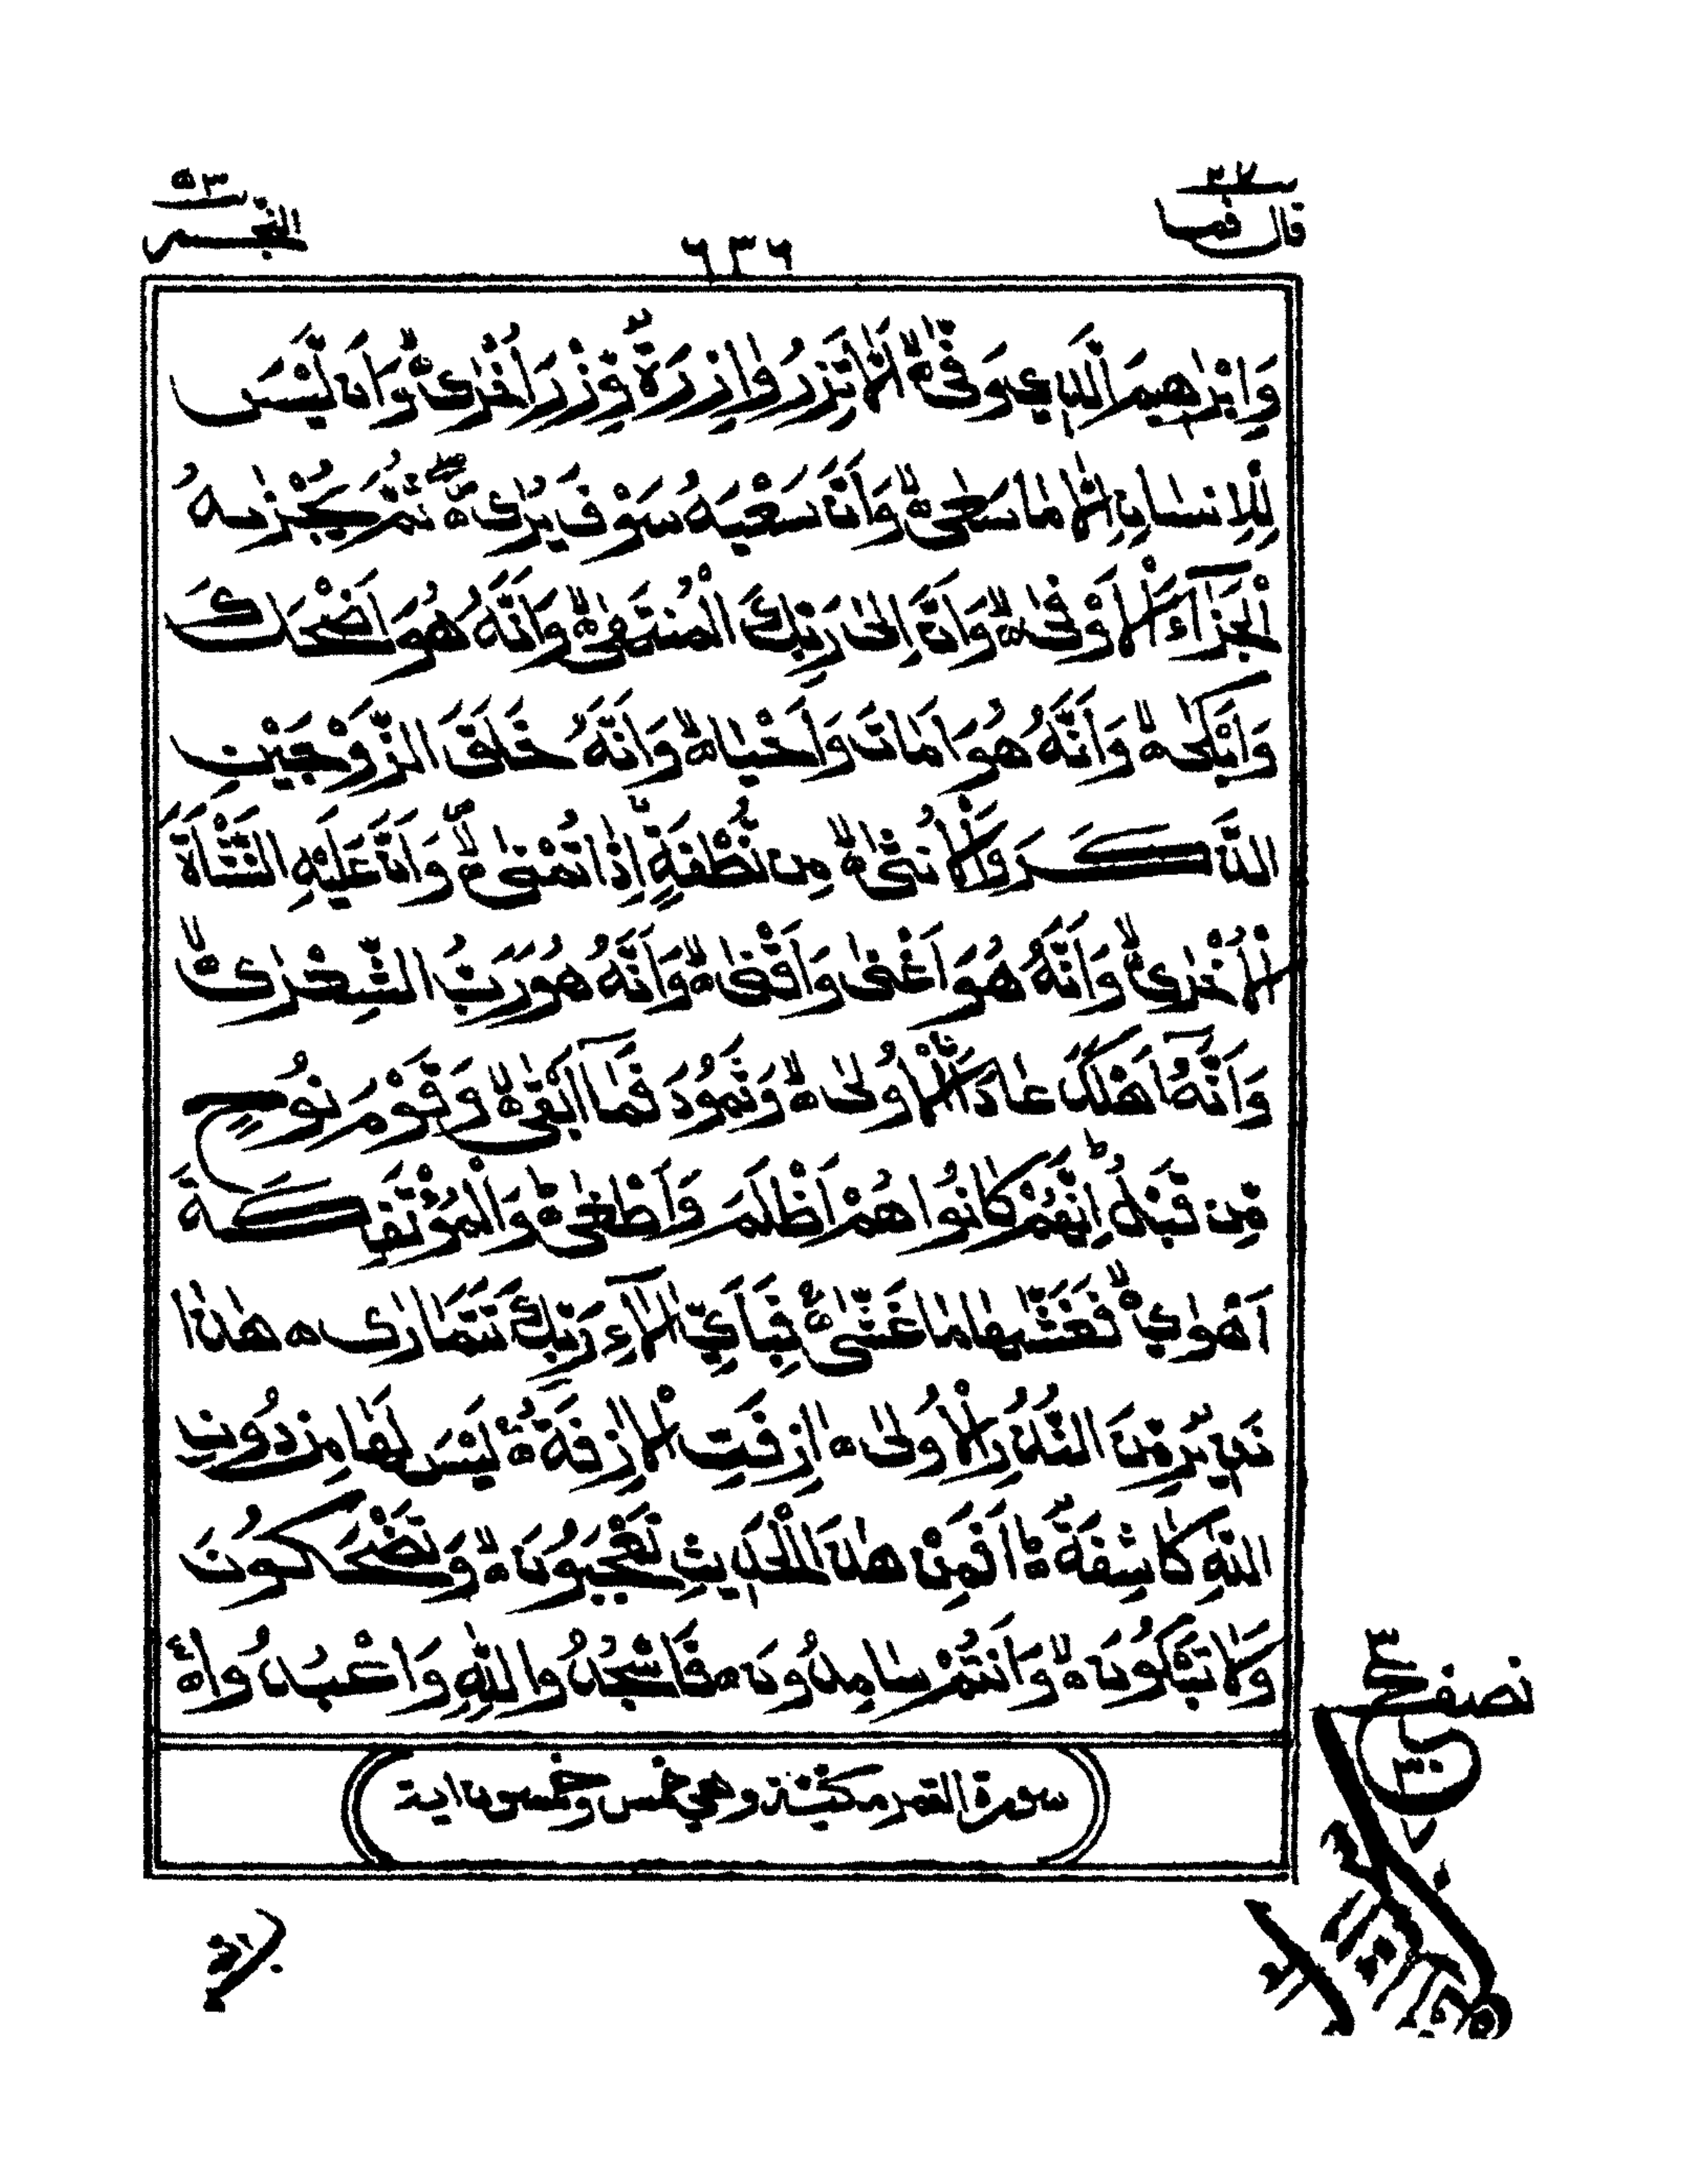 ٢٧
قال فما
٦٣٦
٥٣
النجم
وَاِبْرٰهِيْمَ الَّذِيْ وَفّٰىۙ اَلَّا تَزِرُ وَازِرَةٌ وِّزْرَ اُخْرٰىۙ وَاَنْ لَّيْسَ
لِلْاِنْسَانِ اِلَّا مَا سَعٰىۙ وَاَنَّ سَعْيَهٗ سَوْفَ يُرٰىۖ ثُمَّ يُجْزٰىهُ
الْجَزَآءَ الْاَوْفٰىۙ وَاَنَّ اِلٰى رَبِّكَ الْمُنْتَهٰىۙ وَاَنَّهٗ هُوَ اَضْحَكَ
وَاَبْكٰىۙ وَاَنَّهٗ هُوَ اَمَاتَ وَاَحْيَاۙ وَاَنَّهٗ خَلَقَ الزَّوْجَيْنِ
الذَّكَرَ وَالْاُنْثٰىۙ مِنْ نُّطْفَةٍ اِذَا تُمْنٰىۙ وَاَنَّ عَلَيْهِ النَّشْاَةَ
الْاُخْرٰىۙ وَاَنَّهٗ هُوَ اَغْنٰى وَاَقْنٰىۙ وَاَنَّهٗ هُوَ رَبُّ الشِّعْرٰىۙ
وَاَنَّهٗٓ اَهْلَكَ عَادًا الْاُوْلٰىۙ وَثَمُوْدَ فَمَآ اَبْقٰىۙ وَقَوْمَ نُوْحٍ
مِّنْ قَبْلُ اِنَّهُمْ كَانُوْا هُمْ اَظْلَمَ وَاَطْغٰىۗ وَالْمُؤْتَفِكَةَ
اَهْوٰىۙ فَغَشّٰىهَا مَا غَشّٰىۚ فَبِاَيِّ اٰلَآءِ رَبِّكَ تَتَمَارٰى هٰذَا
نَذِيْرٌ مِّنَ النُّذُرِ الْاُوْلٰى اَزِفَتِ الْاٰزِفَةُۚ لَيْسَ لَهَا مِنْ دُوْنِ
اللّٰهِ كَاشِفَةٌۗ اَفَمِنْ هٰذَا الْحَدِيْثِ تَعْجَبُوْنَۙ وَتَضْحَكُوْنَ
وَلَا تَبْكُوْنَۙ وَاَنْتُمْ سَامِدُوْنَ فَاسْجُدُوْا لِلّٰهِ وَاعْبُدُوْا
سورة القمر مكية وهي خمس وخمسون اية
نصف